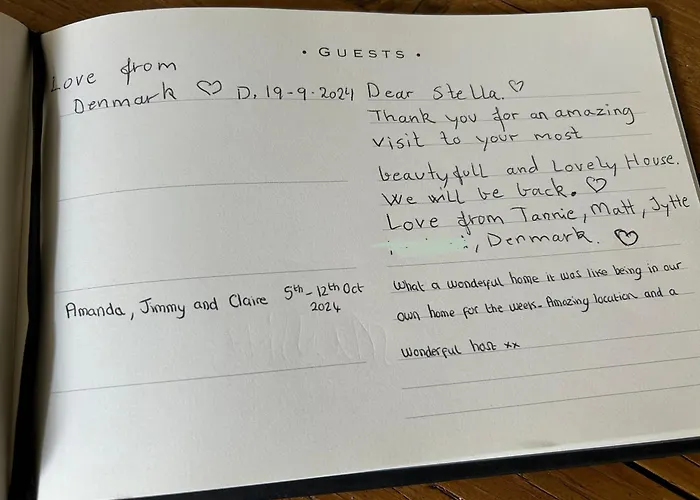 • GUESTS •
Love from
Denmark ♡ D. 19-9-2024
Dear Stella. ♡
Thank you for an amazing
visit to your most
beautyfull and Lovely House.
We will be back. ♡
Love from Tannie, Matt, Jytte
, Denmark. ♡
Amanda, Jimmy and Claire 5th - 12th Oct
2024
What a wonderful home it was like being in our
own home for the week. Amazing location and a
wonderful host xx